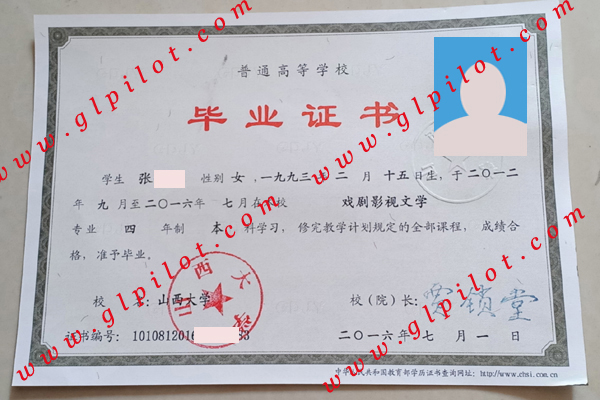 普通高等学校
毕业证书
学生 张 性别 女,一九九三年 二 月 十五日生,于二〇一二
年 九 月至二〇一六年 七月在本校 戏剧影视文学
专业 四 年制 本 科学习,修完教学计划规定的全部课程,成绩合
格,准予毕业。
校 名:山西大学 校(院)长:
山西大学
证书编号: 1010812016 33 二〇一六年 七 月 一 日
中华人民共和国教育部学历证书查询网址: http://www.chsi.com.cn
www.glpilot.com
www.glpilot.com
www.glpilot.com
www.glpilot.com